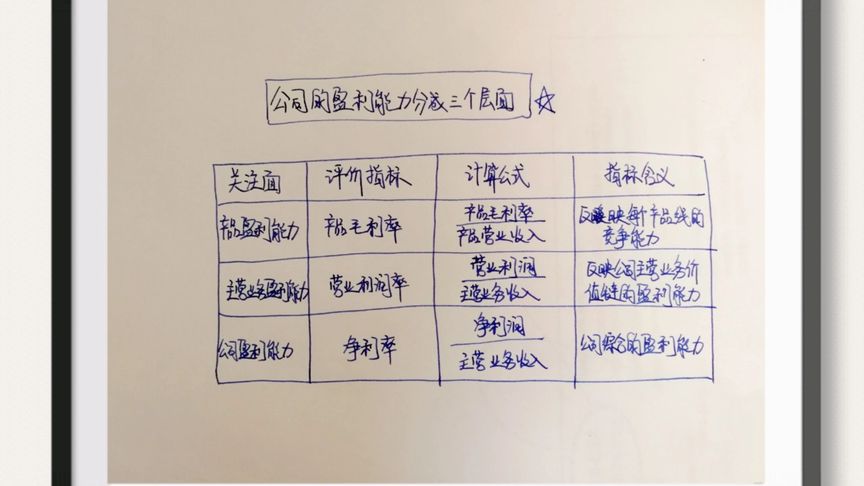 公司的盈利能力分成三个层面 ☆
关注面 评价指标 计算公式 指标含义
产品盈利能力 产品毛利率 产品毛利率 反映每个产品线的
产品营业收入 竞争能力
主营业务盈利能力 营业利润率 营业利润 反映公司主营业务价
主营业务收入 值链的盈利能力
公司盈利能力 净利率 净利润 公司综合的盈利能力
主营业务收入